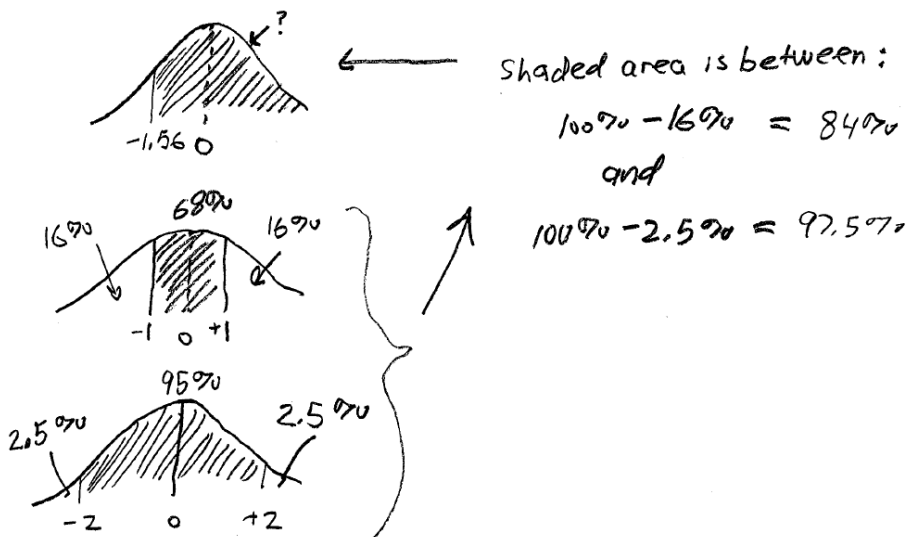 ?
-1.56 0
Shaded area is between:
100% - 16% = 84%
and
100% - 2.5% = 97.5%
68%
16% 16%
-1 0 +1
95%
2.5% 2.5%
-2 0 +2